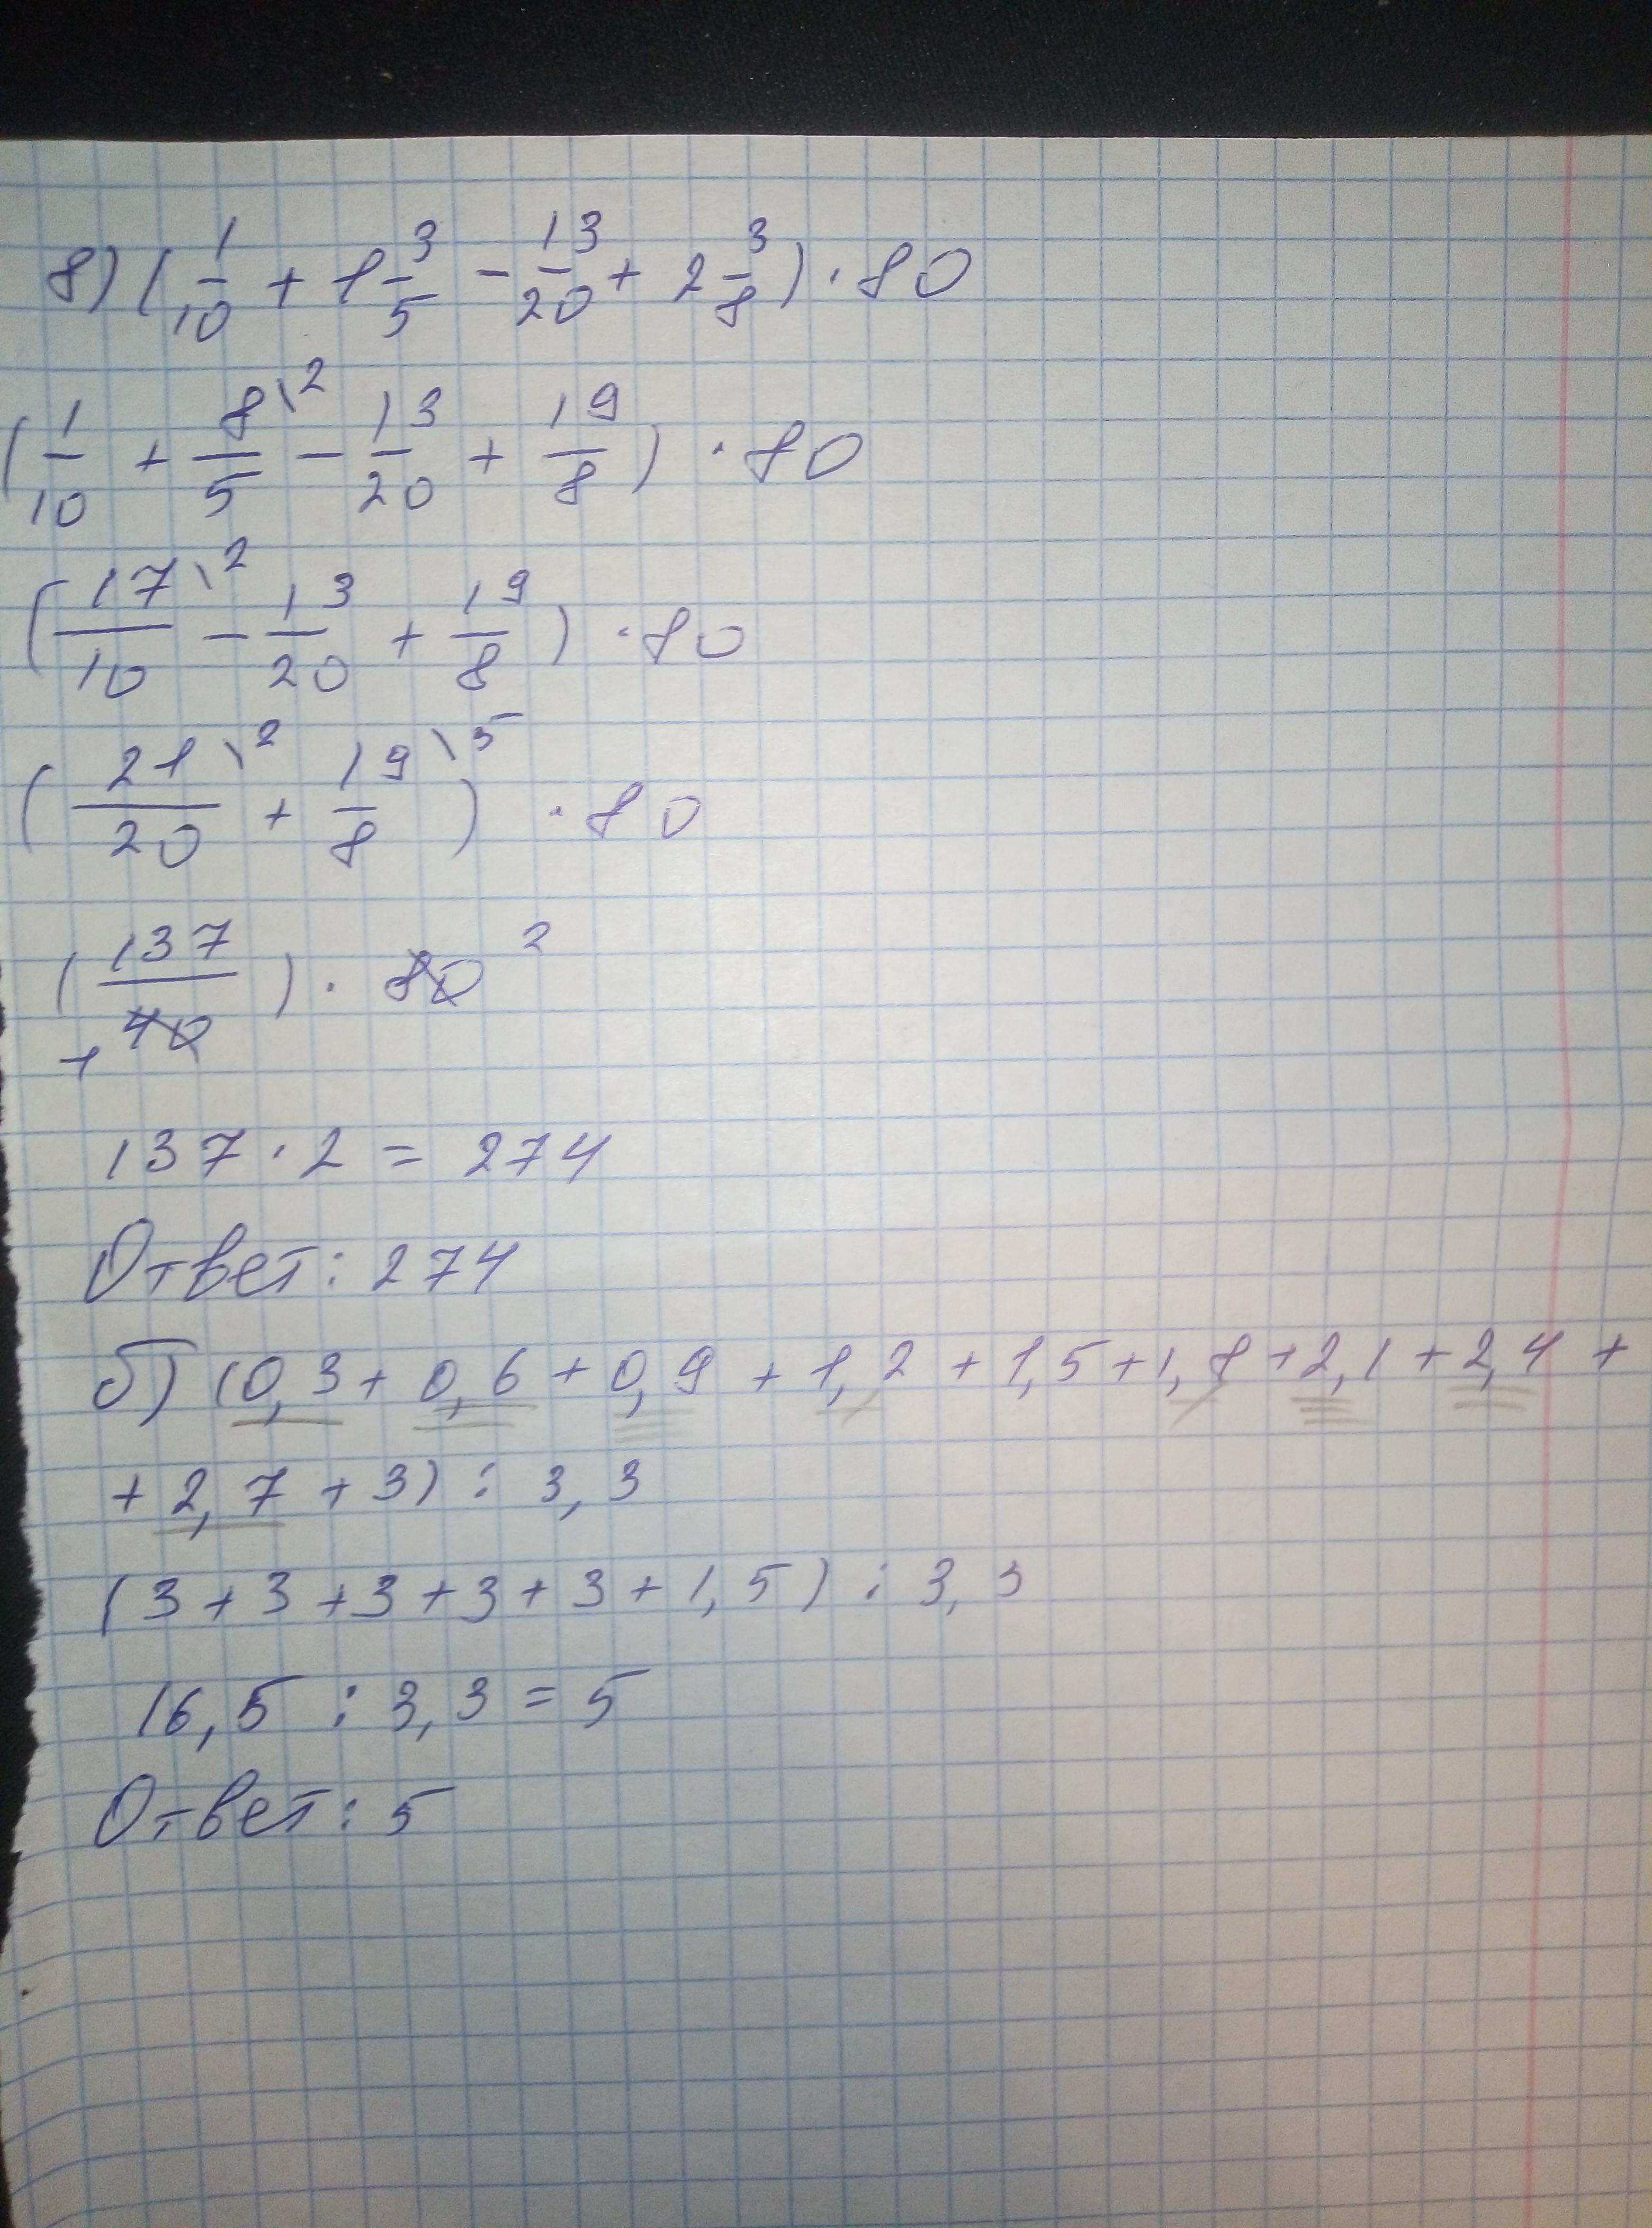 8) (1/10 + 1 3/5 - 13/20 + 2 3/8) · 80
(1/10 + 8\2/5 - 13/20 + 19/8) · 80
(17\2/10 - 13/20 + 19/8) · 80
(21\2/20 + 19\5/8) · 80
(137/40) · 80 2
1
137 · 2 = 274
Ответ: 274
б) (0,3 + 0,6 + 0,9 + 1,2 + 1,5 + 1,8 + 2,1 + 2,4 +
+ 2,7 + 3) : 3,3
(3 + 3 + 3 + 3 + 3 + 1,5) : 3,3
16,5 : 3,3 = 5
Ответ: 5